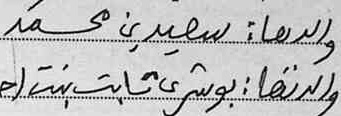 والدها: سعيد بن محمد
والدتها: بوشرى ثابت بنت